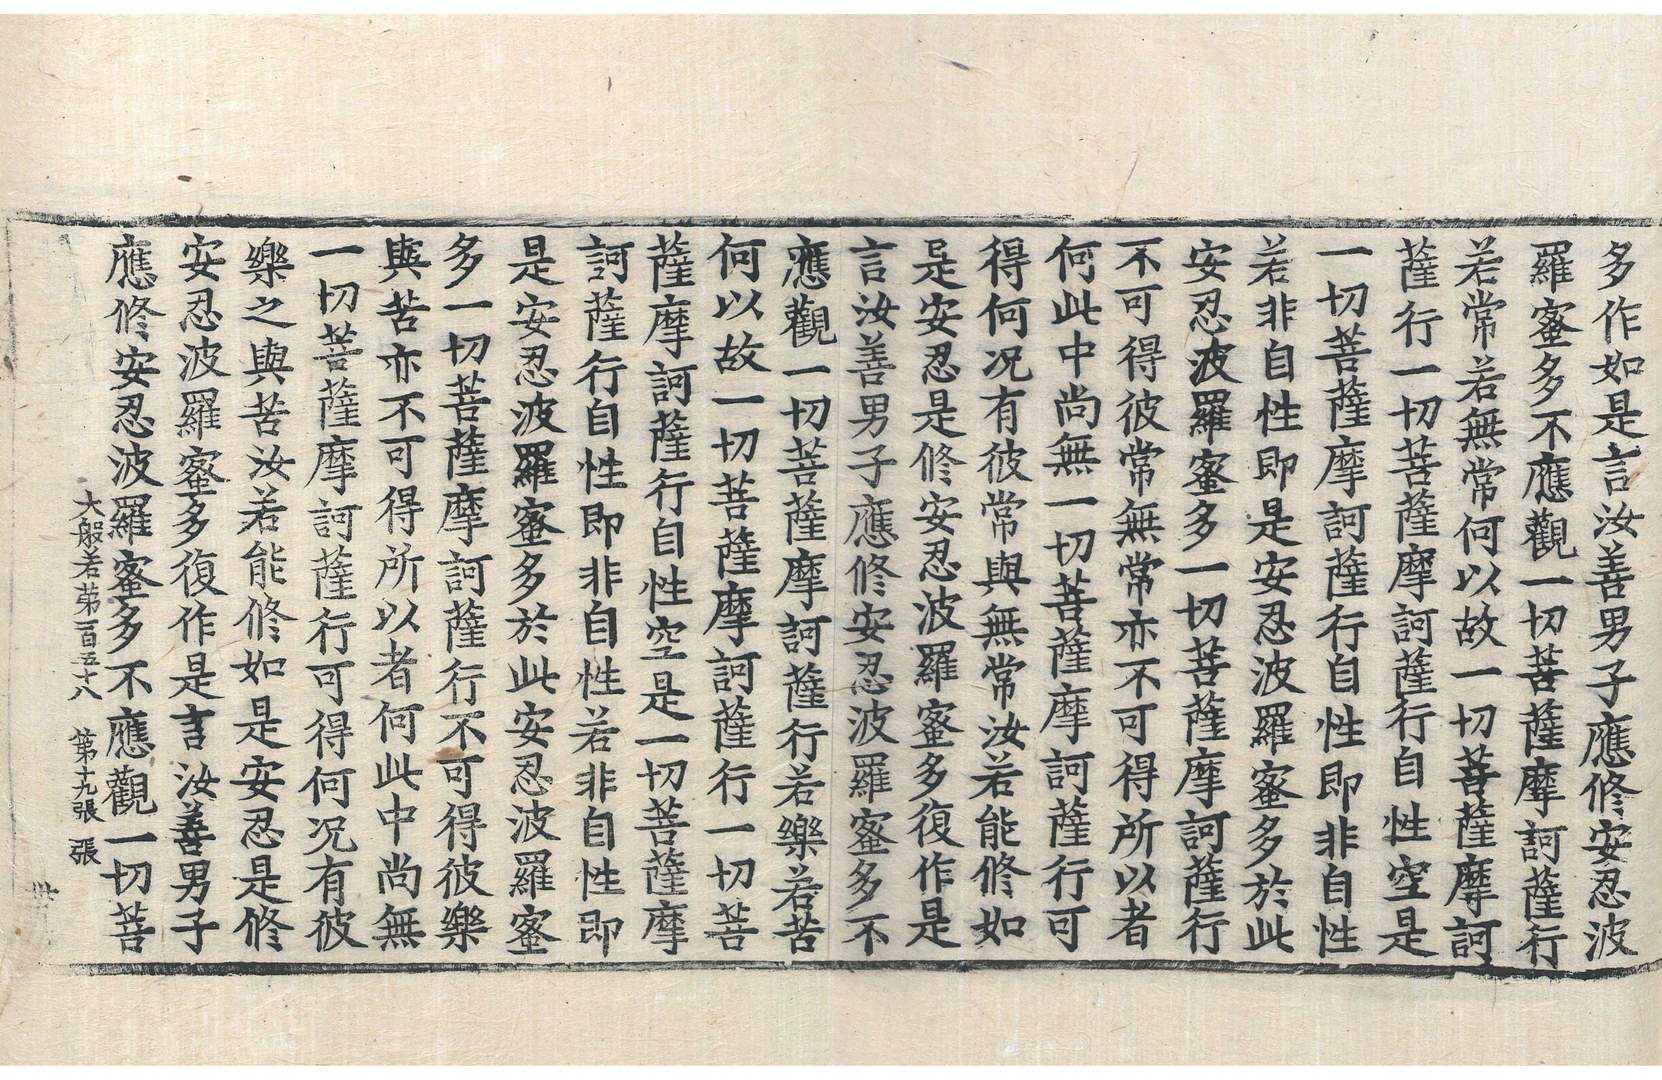 多作如是言汝善男子應修安忍波
羅蜜多不應觀一切菩薩摩訶薩行
若常若無常何以故一切菩薩摩訶
薩行一切菩薩摩訶薩行自性空是
一切菩薩摩訶薩行自性即非自性
若非自性即是安忍波羅蜜多於此
安忍波羅蜜多一切菩薩摩訶薩行
不可得彼常無常亦不可得所以者
何此中尚無一切菩薩摩訶薩行可
得何况有彼常與無常汝若能修如
是安忍是修安忍波羅蜜多復作是
言汝善男子應修安忍波羅蜜多不
應觀一切菩薩摩訶薩行若樂若苦
何以故一切菩薩摩訶薩行一切菩
薩摩訶薩行自性空是一切菩薩摩
訶薩行自性即非自性若非自性即
是安忍波羅蜜多於此安忍波羅蜜
多一切菩薩摩訶薩行不可得彼樂
與苦亦不可得所以者何此中尚無
一切菩薩摩訶薩行可得何况有彼
樂之與苦汝若能修如是安忍是修
安忍波羅蜜多復作是言汝善男子
應修安忍波羅蜜多不應觀一切菩
大般若第百五十八 第十九張 張